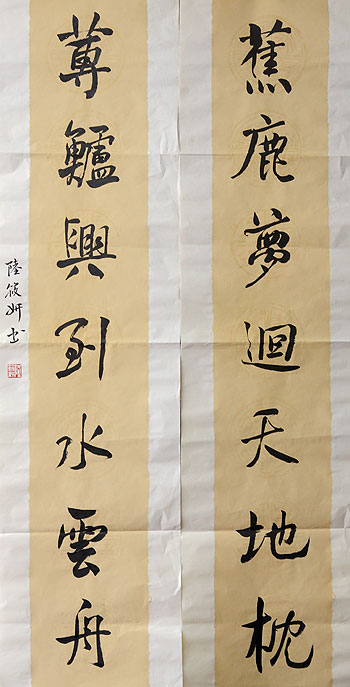 蕉鹿夢迴天地枕
蓴鱸興到水雲舟
陸筱妍書